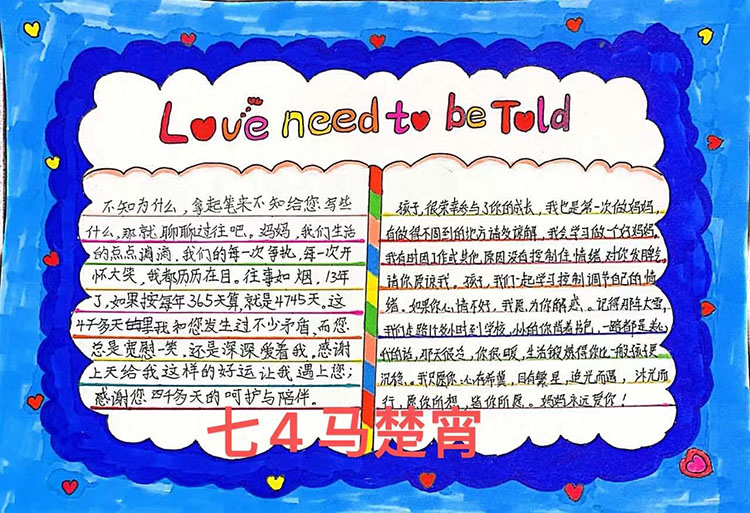 Love need to be Told
不知为什么，拿起笔来不知给您写些
什么，那就聊聊过往吧，妈妈，我们生活
的点点滴滴，我们的每一次争执，每一次开
怀大笑，我都历历在目。往事如烟，13年
了，如果按每年365天算，就是4745天。这
4千多天里我和您发生过不少矛盾，而您
总是宽慰一笑，还是深深爱着我，感谢
上天给我这样的好运让我遇上您；
感谢您四千多天的呵护与陪伴。
孩子，很荣幸参与了你的成长，我也是第一次做妈妈，
有做得不周到的地方请多谅解，我会学习做一个好妈妈，
我有时因工作或其他原因没有控制住情绪，对你发脾气
请你原谅我。孩子，我们一起学习控制调节自己的情
绪。如果你心情不好，我愿为你解惑。记得那年大雪，
我们走路1个小时到学校，小小的你背着书包，一路都是
的说，那天很冷，你很暖，生活
我只愿你，心存希望，目有繁星，追光而遇，沐光而
行，愿你所想，皆你所愿。妈妈永远爱你！
七4马楚宵